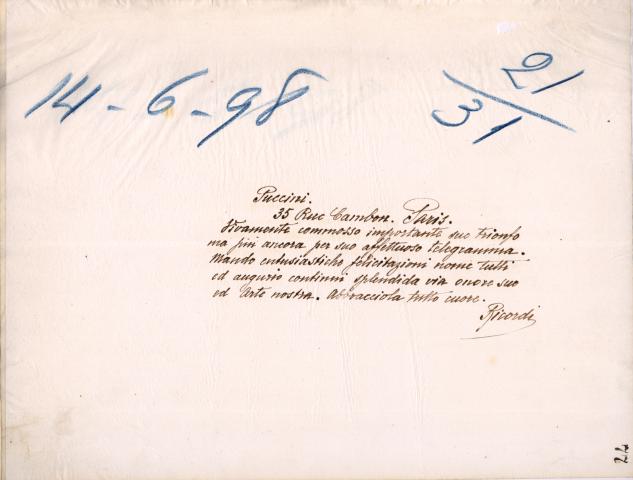 14-6-98
21/31
Puccini.
35 Rue Cambon. Paris.
Vivamente commosso importante suo trionfo
ma più ancora per suo affettuoso telegramma.
Mando entusiastiche felicitazioni nome tutti
ed augurio continui splendida via onore suo
ed Arte nostra. Abbracciola tutto cuore.
Ricordi